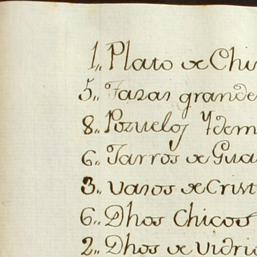 1,, Plato de Chi
5,, Tazas grande
8,, Pozuelos Idem
6,, Tarros de Gua
3,, Vasos de Crist
6,, Dhos Chicos
2,, Dhos de Vidri